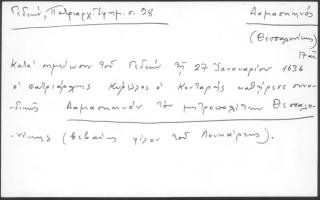 Γεδεών, Πατριαρχ. Ἐφημ. σ. 98
Δαμασκηνός
(Θεσσαλονίκης)
17 αἰ.
Κατὰ σημείωσιν τοῦ Γεδεὼν τῇ 27 Ἰανουαρίου 1636
ὁ πατριάρχης Κύριλλος ὁ Κονταρῆς καθῄρεσε συνο-
δικῶς Δαμασκηνὸν τὸν μητροπολίτην Θεσσαλο-
νίκης (βεβαίως φίλον τοῦ Λουκάρεως).